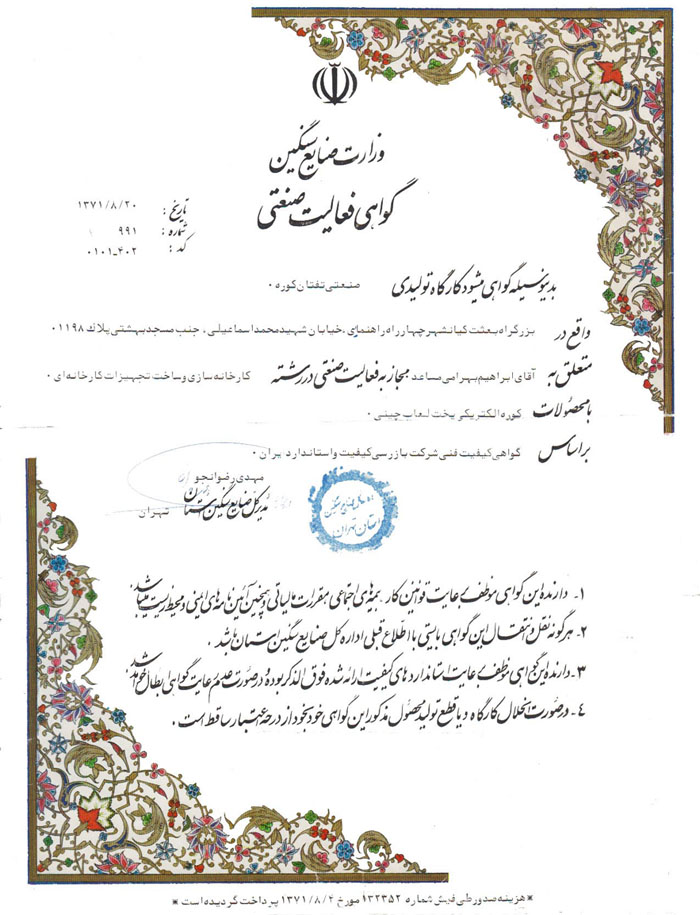 وزارت صنایع سنگین
گواهی فعالیت صنعتی
تاریخ : ۱۳۷۱/۸/۲۰
شماره : ۹۹۱
کد : ۰۱۰۱-۴۰۲
بدینوسیله گواهی میشود کارگاه تولیدی صنعتی تفتان کوره ۰
واقع در بزرگراه بعثت کیانشهر چهارراه راهنمای ، خیابان شهید محمد اسماعیلی ، جنب مسجد بهشتی پلاک ۰۱۱۹۸
متعلق به آقای ابراهیم بهرامی مساعد مجاز به فعالیت صنعتی در رشته کارخانه سازی و ساخت تجهیزات کارخانه ای ۰
با محصولات کوره الکتریکی پخت لعاب چینی ۰
براساس گواهی کیفیت فنی شرکت بازرسی کیفیت و استاندارد ایران ۰
مهدی رضوانجو
مدیر کل صنایع سنگین استان تهران
اداره کل صنایع سنگین
استان تهران
۱- دارنده این گواهی موظف برعایت قوانین کار بیمه های اجتماعی مقررات مالیاتی و همچنین آئین نامه های ایمنی و محیط زیست میباشد.
۲- هرگونه نقل و انتقال این گواهی بایستی با اطلاع قبلی اداره کل صنایع سنگین استان باشد .
۳- دارنده این گواهی موظف برعایت استانداردهای کیفیت ارائه شده فوق الذکر بوده و درصورت عدم رعایت گواهی ابطال خواهد شد.
۴- درصورت انحلال کارگاه و یا قطع تولید محصول مذکور این گواهی خودبخود از درجه اعتبار ساقط است .
* هزینه صدور طی فیش شماره ۱۳۲۳۵۲ مورخ ۱۳۷۱/۸/۴ پرداخت گردیده است *